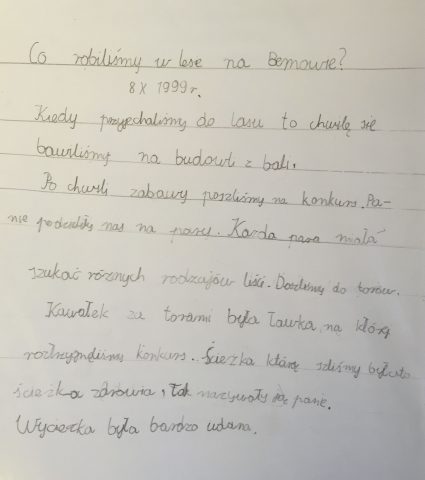 Co robiliśmy w lese na Bemowie?
8 X 1999 r.
Kiedy przyjechaliśmy do lasu to chwilę się
bawiliśmy na budowli z bali.
Po chwili zabawy poszliśmy na konkurs. Pa-
nie podzieliły nas na pary. Każda para miała
szukać róznych rodzajów liści. Doszliśmy do torów.
Kawałek za torami była ławka, na którą
konkurs. Ścieżka którą szliśmy była to
ścieżka zdrowia, tak nazywały ją panie.
Wycieczka była bardzo udana.